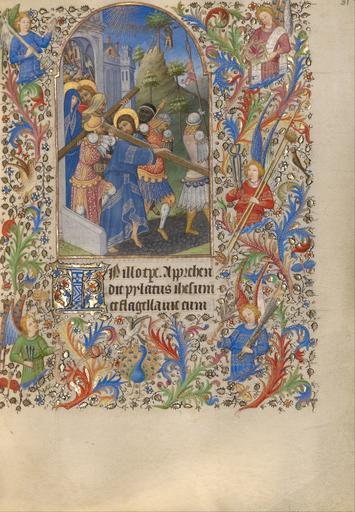 31
In illo tpe. Apprehen
dit pylatus ihesum
et flagellauit eum